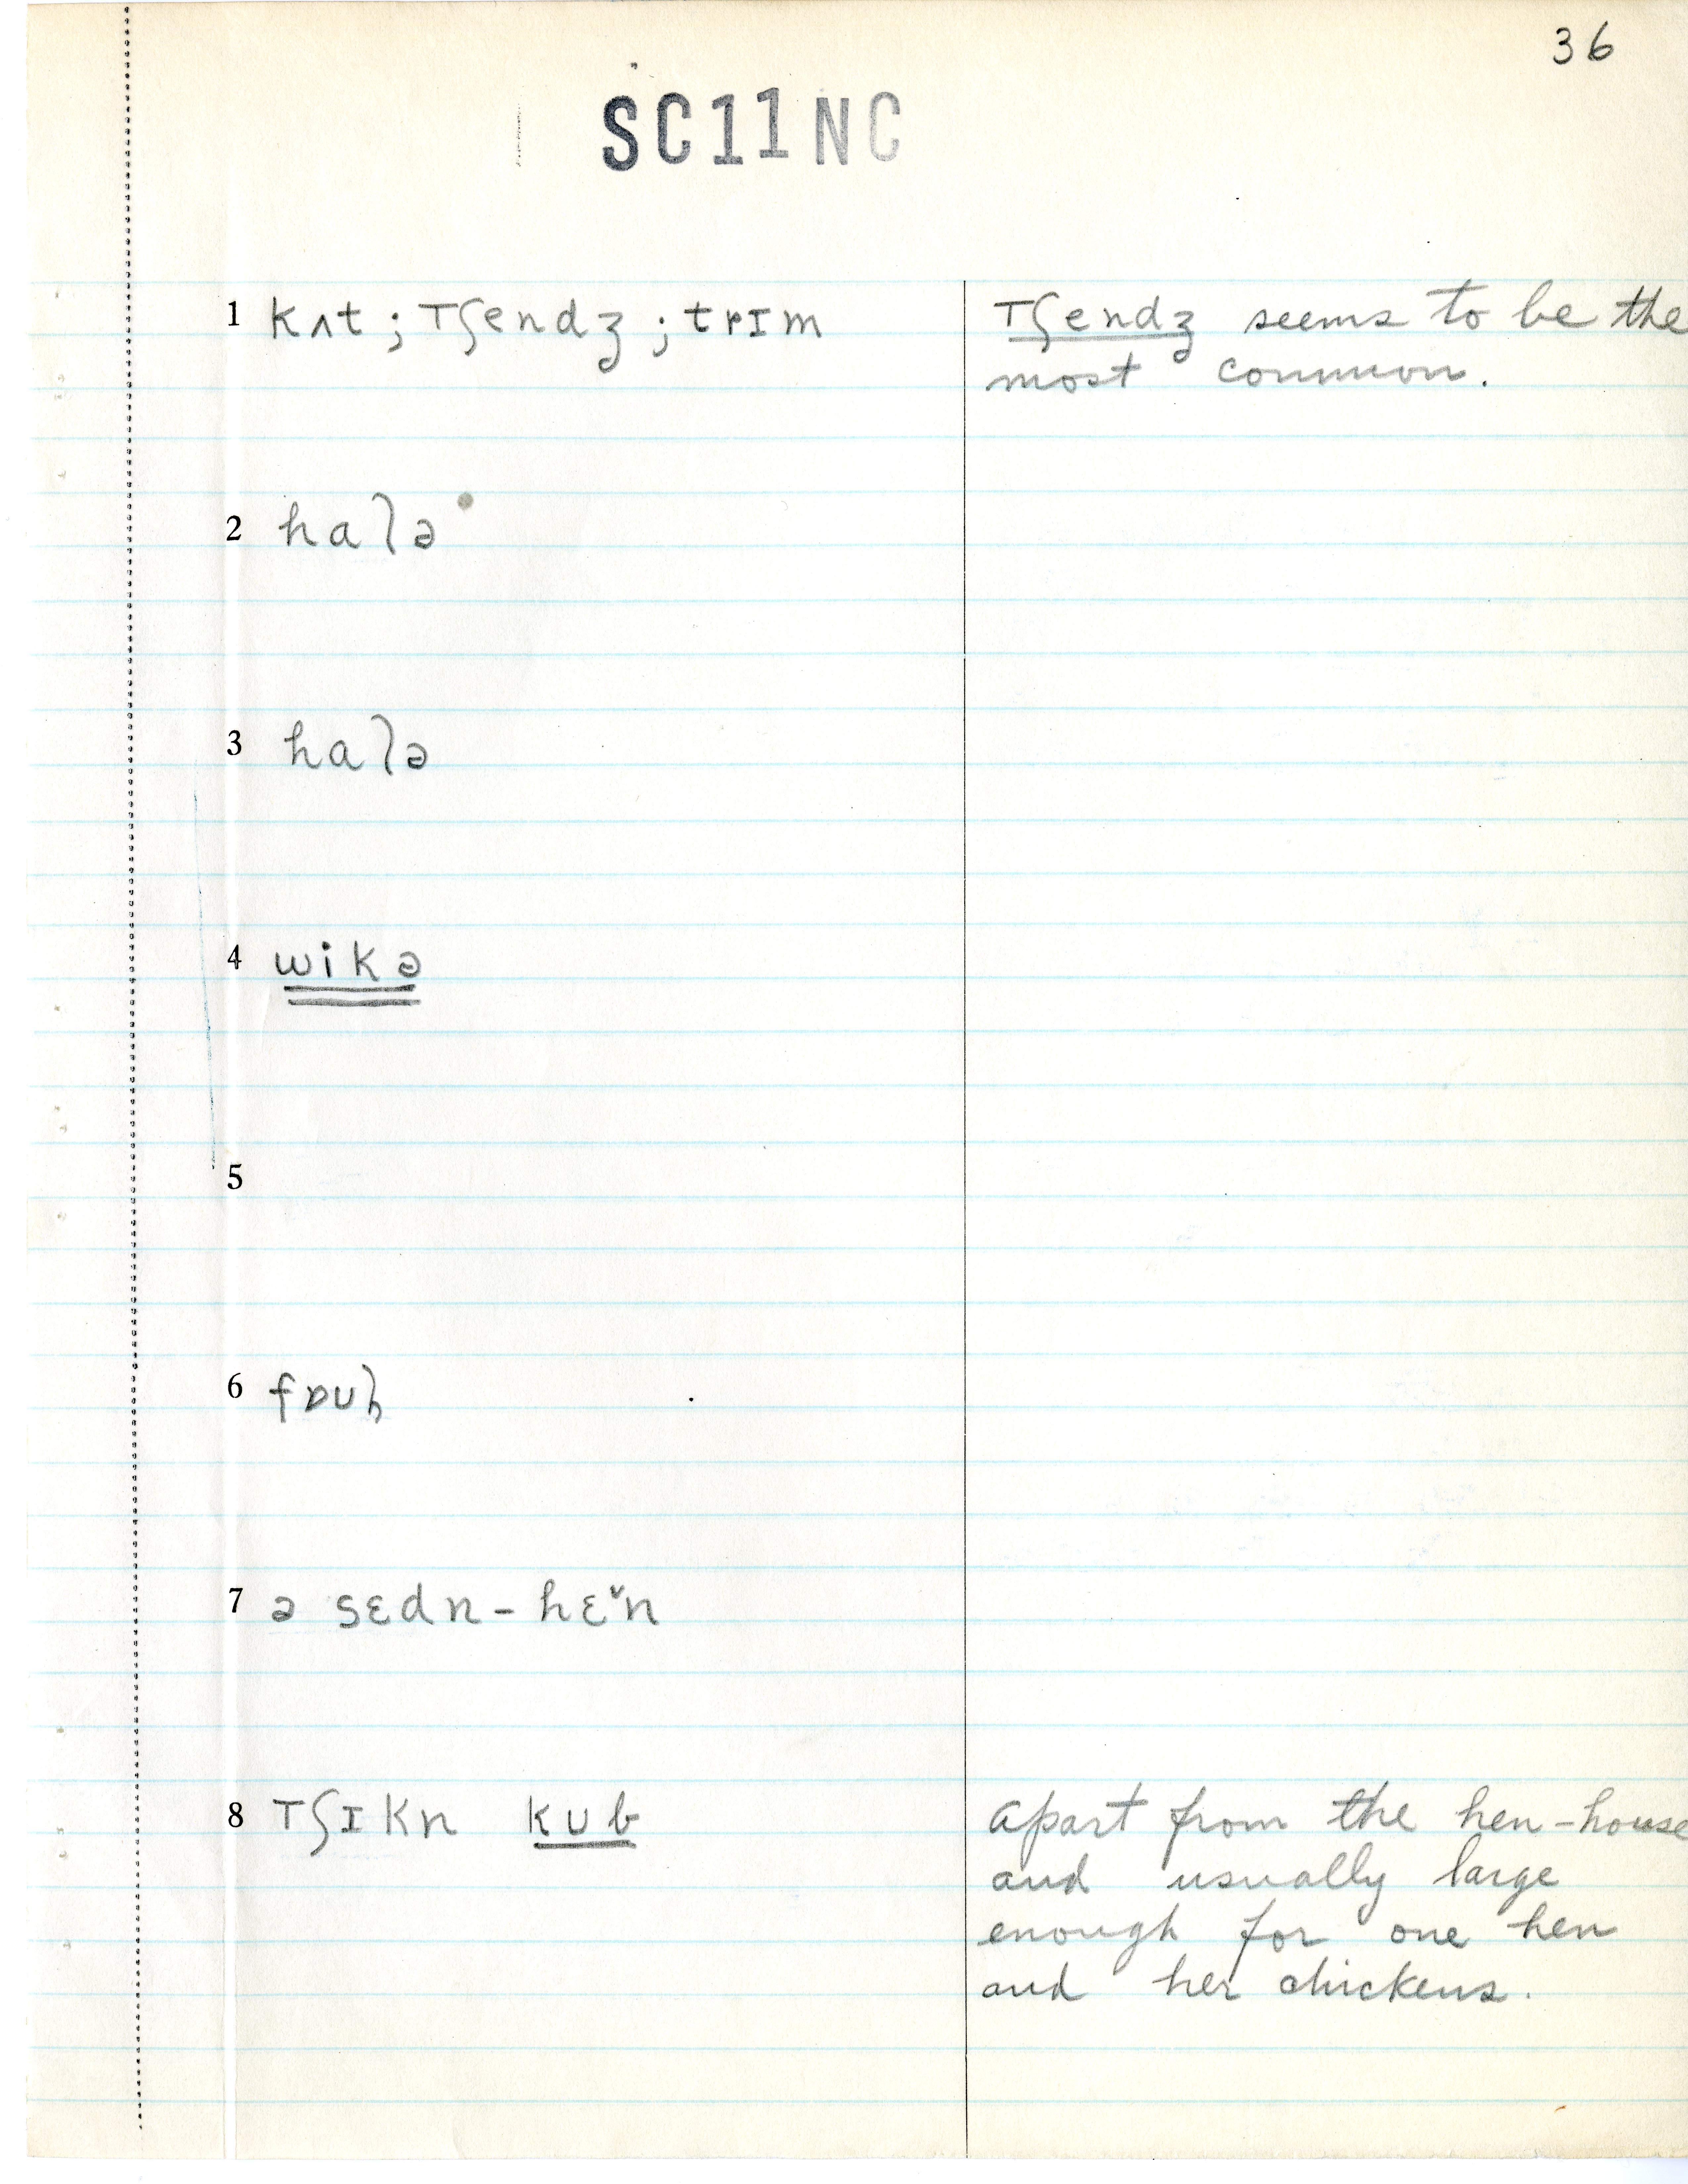 36
SC11NC
1 kʌt; tʃendʒ; trɪm
tʃendʒ seems to be the
most common.
2 halə
3 halə
4 wikə
5
6 fɒuḷ
7 ə sɛdn-hɛ˅n
8 tʃɪkn kub
apart from the hen-house
and usually large
enough for one hen
and her chickens.